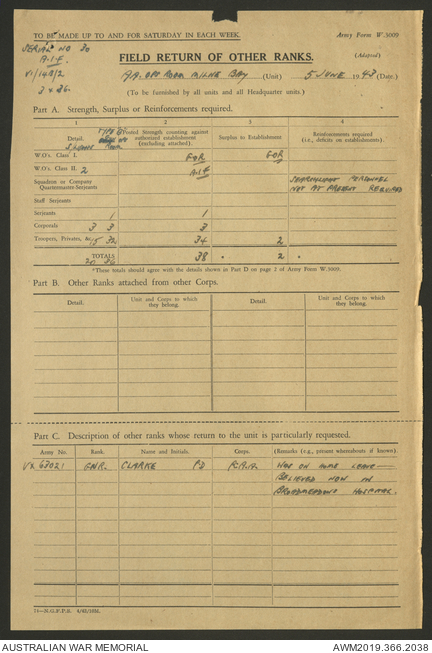 TO BE MADE UP TO AND FOR SATURDAY IN EACH WEEK.
Army Form W.3009
SERIAL NO 30
(Adapted)
A.I.F.
FIELD RETURN OF OTHER RANKS.
A.A. OPS ROOM MILNE BAY (Unit) 5 JUNE 1943 (Date.)
(To be furnished by all units and all Headquarter units.)
Part A. Strength, Surplus or Reinforcements required.
1 2 3 4
Detail. Posted Strength counting against authorized establishment (excluding attached). Surplus to Establishment Reinforcements required (i.e., deficits on establishment).
W.O's. Class I. FOR FOR
W.O's. Class II. 2 A.I.F
Squadron or Company Quartermaster-Serjeants SEARCHLIGHT PERSONNEL NOT AT PRESENT REQUIRED
Staff Serjeants
Serjeants 1 1
Corporals 3 3 3
Troopers, Privates, &c. 15 32 34 2
TOTALS 20 36 38 * 2 *
*These totals should agree with the details shown in Part D on page 2 of Army Form W.3009.
Part B. Other Ranks attached from other Corps.
Detail. Unit and Corps to which they belong. Detail. Unit and Corps to which they belong.
Part C. Description of other ranks whose return to the unit is particularly requested.
Army No. Rank. Name and Initials. Corps. (Remarks (e.g., present whereabouts if known).
VX 63021 GNR. CLARKE PD R.A.A. WAS ON HOME LEAVE —
BELIEVED NOW IN
BROADMEADOWS HOSPITAL.
AUSTRALIAN WAR MEMORIAL
AWM2019.366.2038